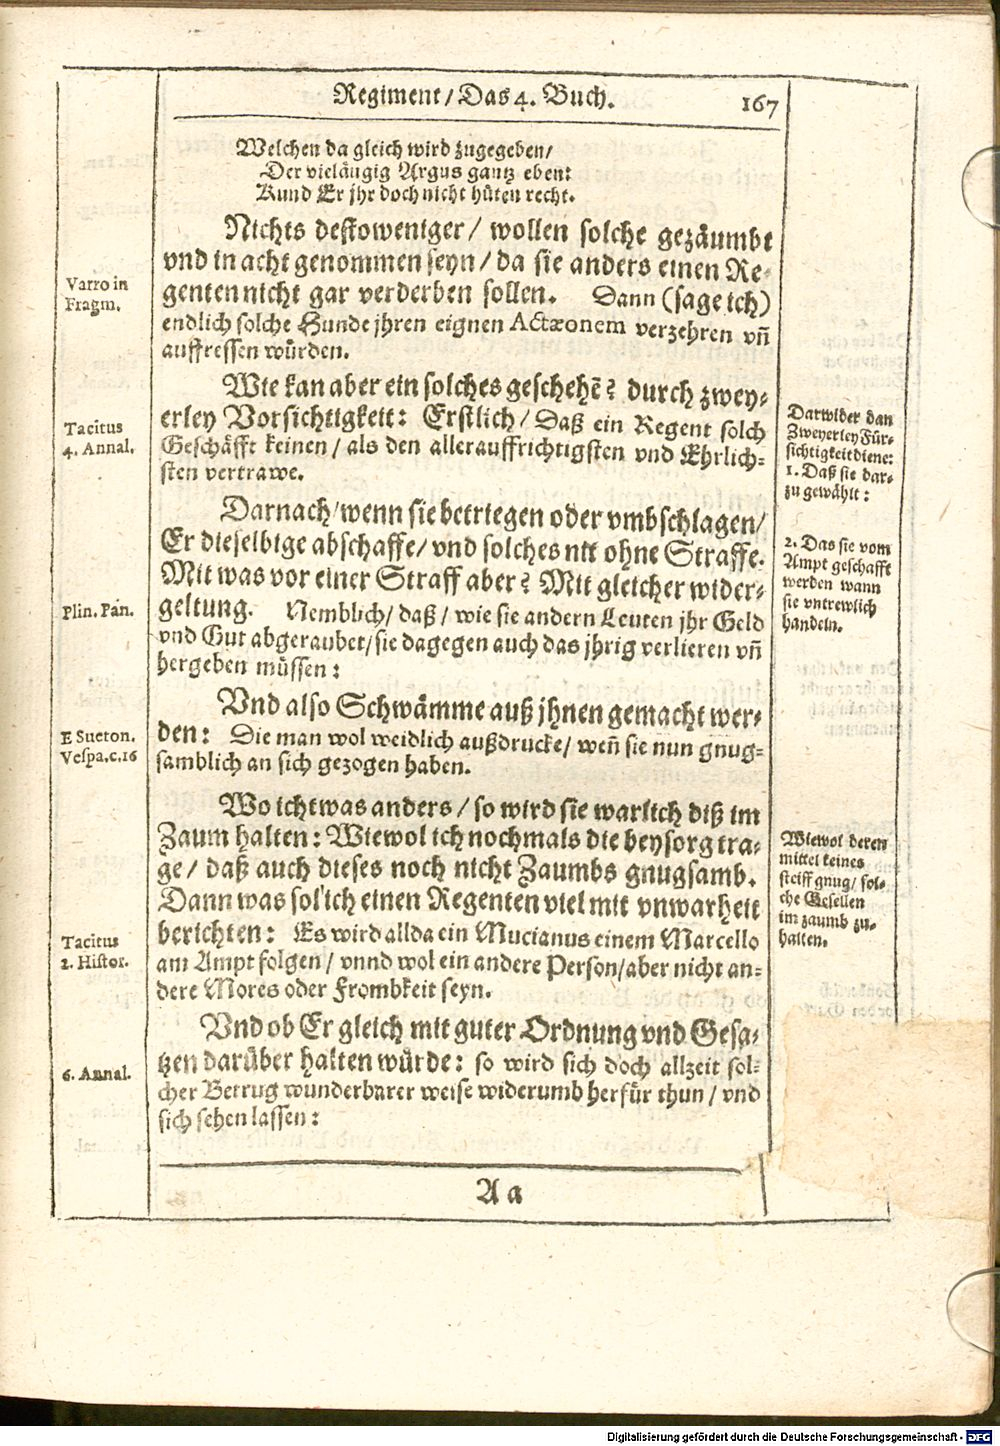 Regiment / Das 4. Buch. 167
Welchen da gleich wird zugegeben /
Der vieläugig Argus gantz eben:
Kund Er jhr doch nicht hüten recht.
Nichts destoweniger / wollen solche gezäumbt
vnd in acht genommen seyn / da sie anders einen Re-
genten nicht gar verderben sollen. Dann (sage ich)
endlich solche Hunde jhren eignen Actæonem verzehren vñ
auffressen würden.
Varro in
Fragm.
Wie kan aber ein solches geschehẽ? durch zwey-
erley Vorsichtigkeit: Erstlich / Daß ein Regent solch
Geschäfft keinen / als den allerauffrichtigsten vnd Ehrlich-
sten vertrawe.
Tacitus
4. Annal.
Darwider dan
Zweyerley Für-
sichtigkeit diene:
1. Daß sie dar-
zu gewählt:
Darnach / wenn sie betriegen oder vmbschlagen /
Er dieselbige abschaffe / vnd solches nit ohne Straffe.
Mit was vor einer Straff aber? Mit gleicher wider-
geltung. Nemblich / daß / wie sie andern Leuten jhr Geld
vnd Gut abgeraubet / sie dagegen auch das jhrig verlieren vñ
hergeben müssen:
Plin. Pan.
2. Das sie vom
Ampt geschafft
werden wann
sie vntrewlich
handeln.
Vnd also Schwämme auß jhnen gemacht wer-
den: Die man wol weidlich außdrucke / weñ sie nun gnug-
samblich an sich gezogen haben.
E Sueton.
Vespa. c. 16
Wo ichtwas anders / so wird sie warlich diß im
Zaum halten: Wiewol ich nochmals die beysorg tra-
ge / daß auch dieses noch nicht Zaumbs gnugsamb.
Dann was sol ich einen Regenten viel mit vnwarheit
berichten: Es wird allda ein Mucianus einem Marcello
am Ampt folgen / vnnd wol ein andere Person / aber nicht an-
dere Mores oder Frombkeit seyn.
Wiewol deren
mittel keines
steiff gnug / sol-
che Gesellen
im zaumb zu-
halten.
Tacitus
2. Histor.
Vnd ob Er gleich mit guter Ordnung vnd Gesa-
tzen darüber halten würde: so wird sich doch allzeit sol-
cher Betrug wunderbarer weise widerumb herfür thun / vnd
sich sehen lassen:
6. Annal.
A a
Digitalisierung gefördert durch die Deutsche Forschungsgemeinschaft - DFG